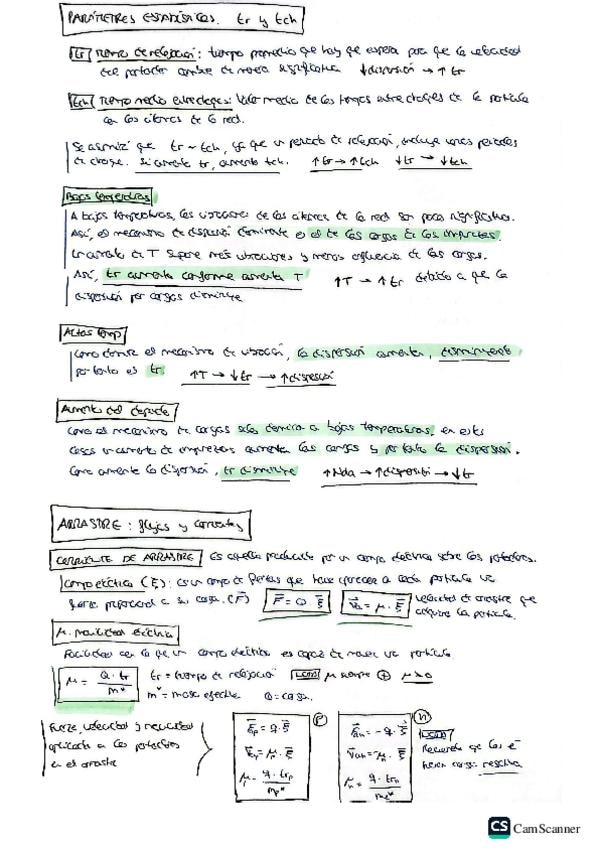 PARÁMETROS ESTADÍSTICOS. tr y tch
tr Tiempo de relajación: tiempo promedio que hay que esperar para que la velocidad
del portador cambie de manera significativa ↓dispersión → ↑ tr
tch Tiempo medio entre choques: Valor medio de los tiempos entre choques de la partícula
con los átomos de la red.
Se asumirá que tr ~ tch, ya que un periodo de relajación, incluye varios periodos
de choque. Si aumenta tr, aumenta tch. ↑tr → ↑tch ↓tr → ↓tch
Bajas temperaturas
A bajas temperaturas, las vibraciones de los átomos de la red son poco significativas.
Así, el mecanismo de dispersión dominante es el de las cargas de las impurezas.
Un aumento de T supone más vibraciones y menos influencia de las cargas.
Así, tr aumenta conforme aumenta T ↑T → ↑tr debido a que la
dispersión por cargas disminuye
Altas temp
Como domina el mecanismo de vibración, la dispersión aumenta, disminuyendo
por tanto el tr ↑T → ↓tr → ↑dispersión
Aumento del dopado
Como el mecanismo de cargas solo domina a bajas temperaturas, en estos
casos un aumento de impurezas aumenta las cargas y por tanto la dispersión.
Como aumenta la dispersión, tr disminuye ↑Nda → ↑dispersión → ↓tr
ARRASTRE: flujos y corrientes
CORRIENTE DE ARRASTRE Es aquella producida por un campo eléctrico sobre los portadores.
Campo eléctrico (ξ): es un campo de fuerzas que hace aparecer a cada partícula una
fuerza proporcional a su carga. (F) F = Q · ξ va = μ · ξ velocidad de arrastre que
adquiere la partícula.
μ. movilidad eléctrica
Facilidad con la que un campo eléctrico es capaz de mover una partícula
μ = Q · tr / m* tr = tiempo de relajación μ siempre ⊕ μ>0
m* = masa efectiva Q = carga.
Fuerza, velocidad y movilidad
aplicada a los portadores
en el arrastre
p
n